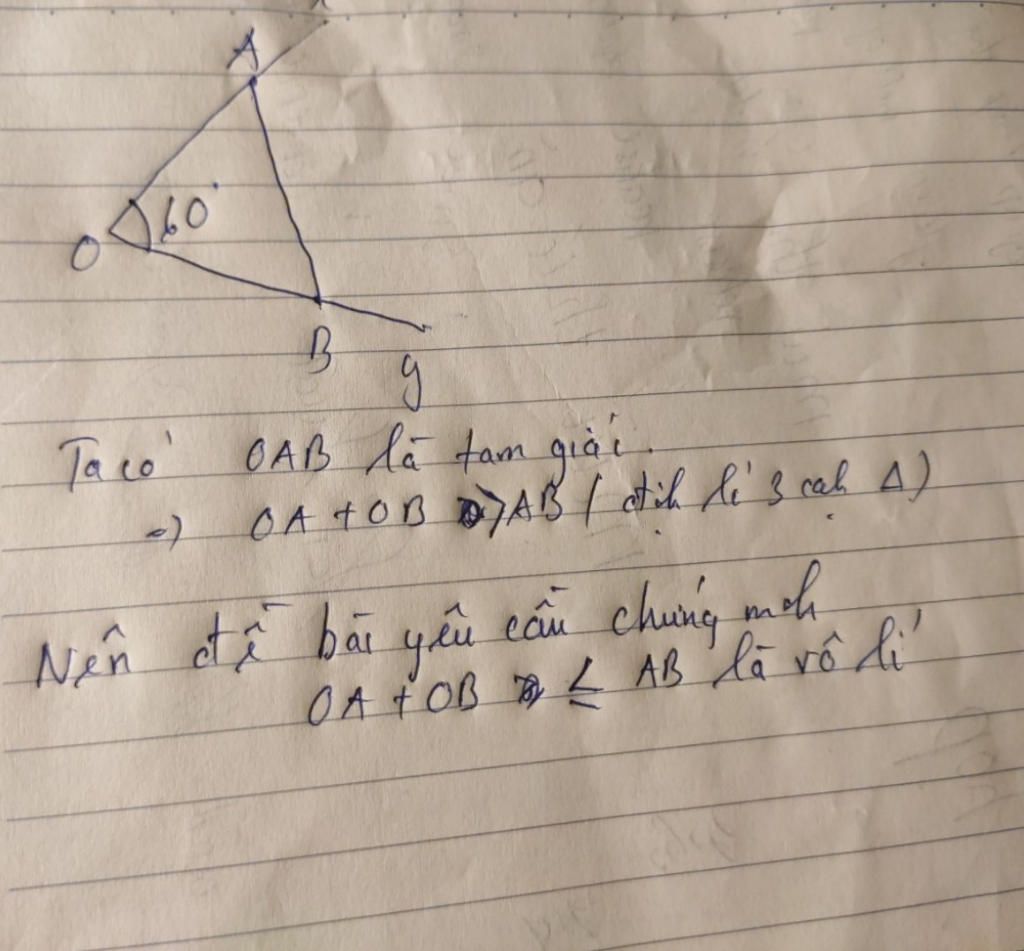 A
60°
O
B
y
Ta có OAB là tam giác.
=) OA + OB > AB ( địh lí 3 cạh Δ)
Nên đề bài yêu cầu chứng mih
OA + OB ≤ AB là vô lí